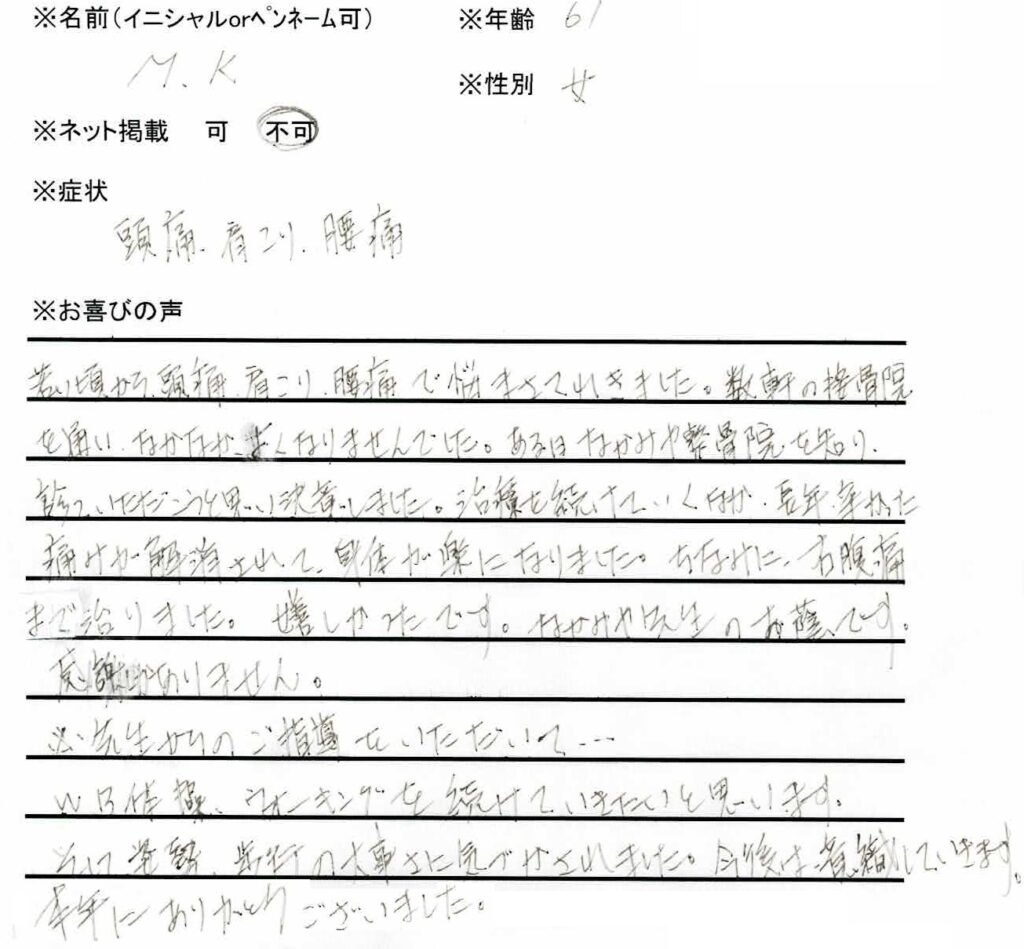 ※名前(イニシャルorペンネーム可)
M.K
※年齢 61
※性別 女
※ネット掲載 可 不可
※症状
頭痛、肩こり、腰痛
※お喜びの声
若い頃から、頭痛、肩こり、腰痛で悩まされてきました。数軒の接骨院
を通い、なかなか、良くなりませんでした。あるはなかみや整骨院を知り、
診ていただこうと思い決着しました。治療を続けていくなか、長年、辛かった
痛みが解消されて、身体が楽になりました。ちなみに、右腹痛
まで治りました。嬉しかったです。なかみや先生のお蔭です。
感謝しかありません。
先生からのご指導をいただいて…
WB体操、ウォーキングを続けていきたいと思います。
そして 姿勢、歩行の大事さに気づかされました。今後は意識していきます。
本年にありがとうございました。